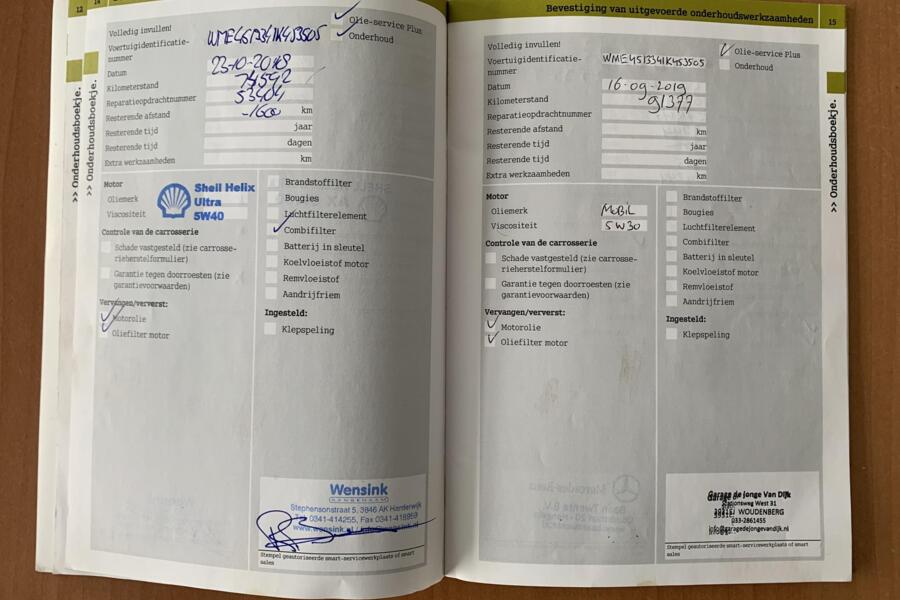 12
14
>> Onderhoudsboekje.
>> Onderhoudsboekje.
Volledig invullen!
Voertuigidentificatie-
nummer
WME4513341K453505
Datum
23-10-2018
Kilometerstand
74592
Reparatieopdrachtnummer
53404
Resterende afstand
-1600 km
Resterende tijd
jaar
Resterende tijd
dagen
Extra werkzaamheden
km
Olie-service Plus
Onderhoud
Motor
Oliemerk
Viscositeit
Shell Helix
Ultra
5W40
Controle van de carrosserie
Schade vastgesteld (zie carrosse-
rieherstelformulier)
Garantie tegen doorroesten (zie
garantievoorwaarden)
Vervangen/ververst:
Motorolie
Oliefilter motor
Brandstoffilter
Bougies
Luchtfilterelement
Combifilter
Batterij in sleutel
Koelvloeistof motor
Remvloeistof
Aandrijfriem
Ingesteld:
Klepspeling
Wensink
Stephensonstraat 5, 3846 AK Harderwijk
Tel. 0341-414255, Fax 0341-418959
www.wensink.nl
Stempel geautoriseerde smart-servicewerkplaats of smart
sales
Bevestiging van uitgevoerde onderhoudswerkzaamheden
15
>> Onderhoudsboekje.
Volledig invullen!
Voertuigidentificatie-
nummer
WME4513341K453505
Datum
16-09-2019
Kilometerstand
91377
Reparatieopdrachtnummer
Resterende afstand
km
Resterende tijd
jaar
Resterende tijd
dagen
Extra werkzaamheden
km
Olie-service Plus
Onderhoud
Motor
Oliemerk
MOBIL
Viscositeit
5W30
Controle van de carrosserie
Schade vastgesteld (zie carrosse-
rieherstelformulier)
Garantie tegen doorroesten (zie
garantievoorwaarden)
Vervangen/ververst:
Motorolie
Oliefilter motor
Brandstoffilter
Bougies
Luchtfilterelement
Combifilter
Batterij in sleutel
Koelvloeistof motor
Remvloeistof
Aandrijfriem
Ingesteld:
Klepspeling
Garage de jonge Van Dijk
Stationsweg West 31
WOUDENBERG
033-2861455
info@garagedejongevandijk.nl
Stempel geautoriseerde smart-servicewerkplaats of smart
sales